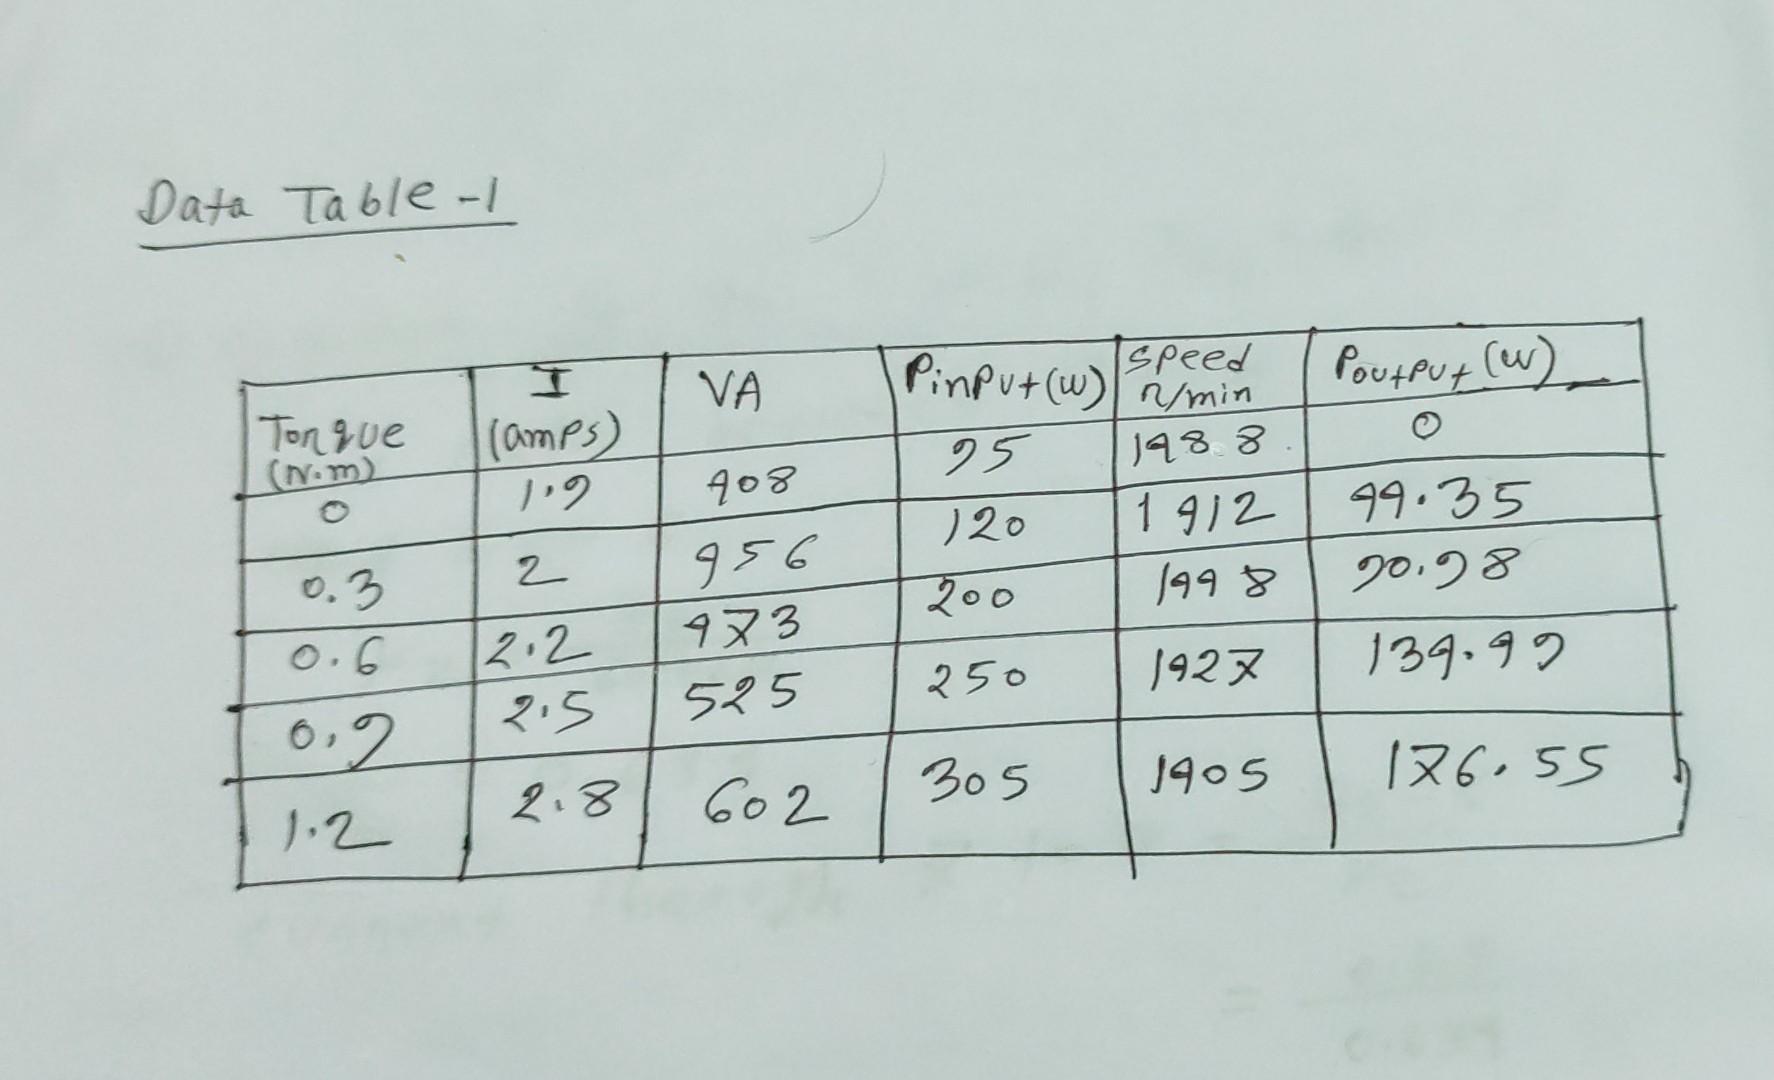 Data Table -1
Torque (N.m) I (amps) VA Pinput (w) speed r/min Poutput (w)
0 1.9 408 95 1488 0
0.3 2 456 120 1412 44.35
0.6 2.2 473 200 1448 90.98
0.9 2.5 525 250 1427 134.49
1.2 2.8 602 305 1405 176.55